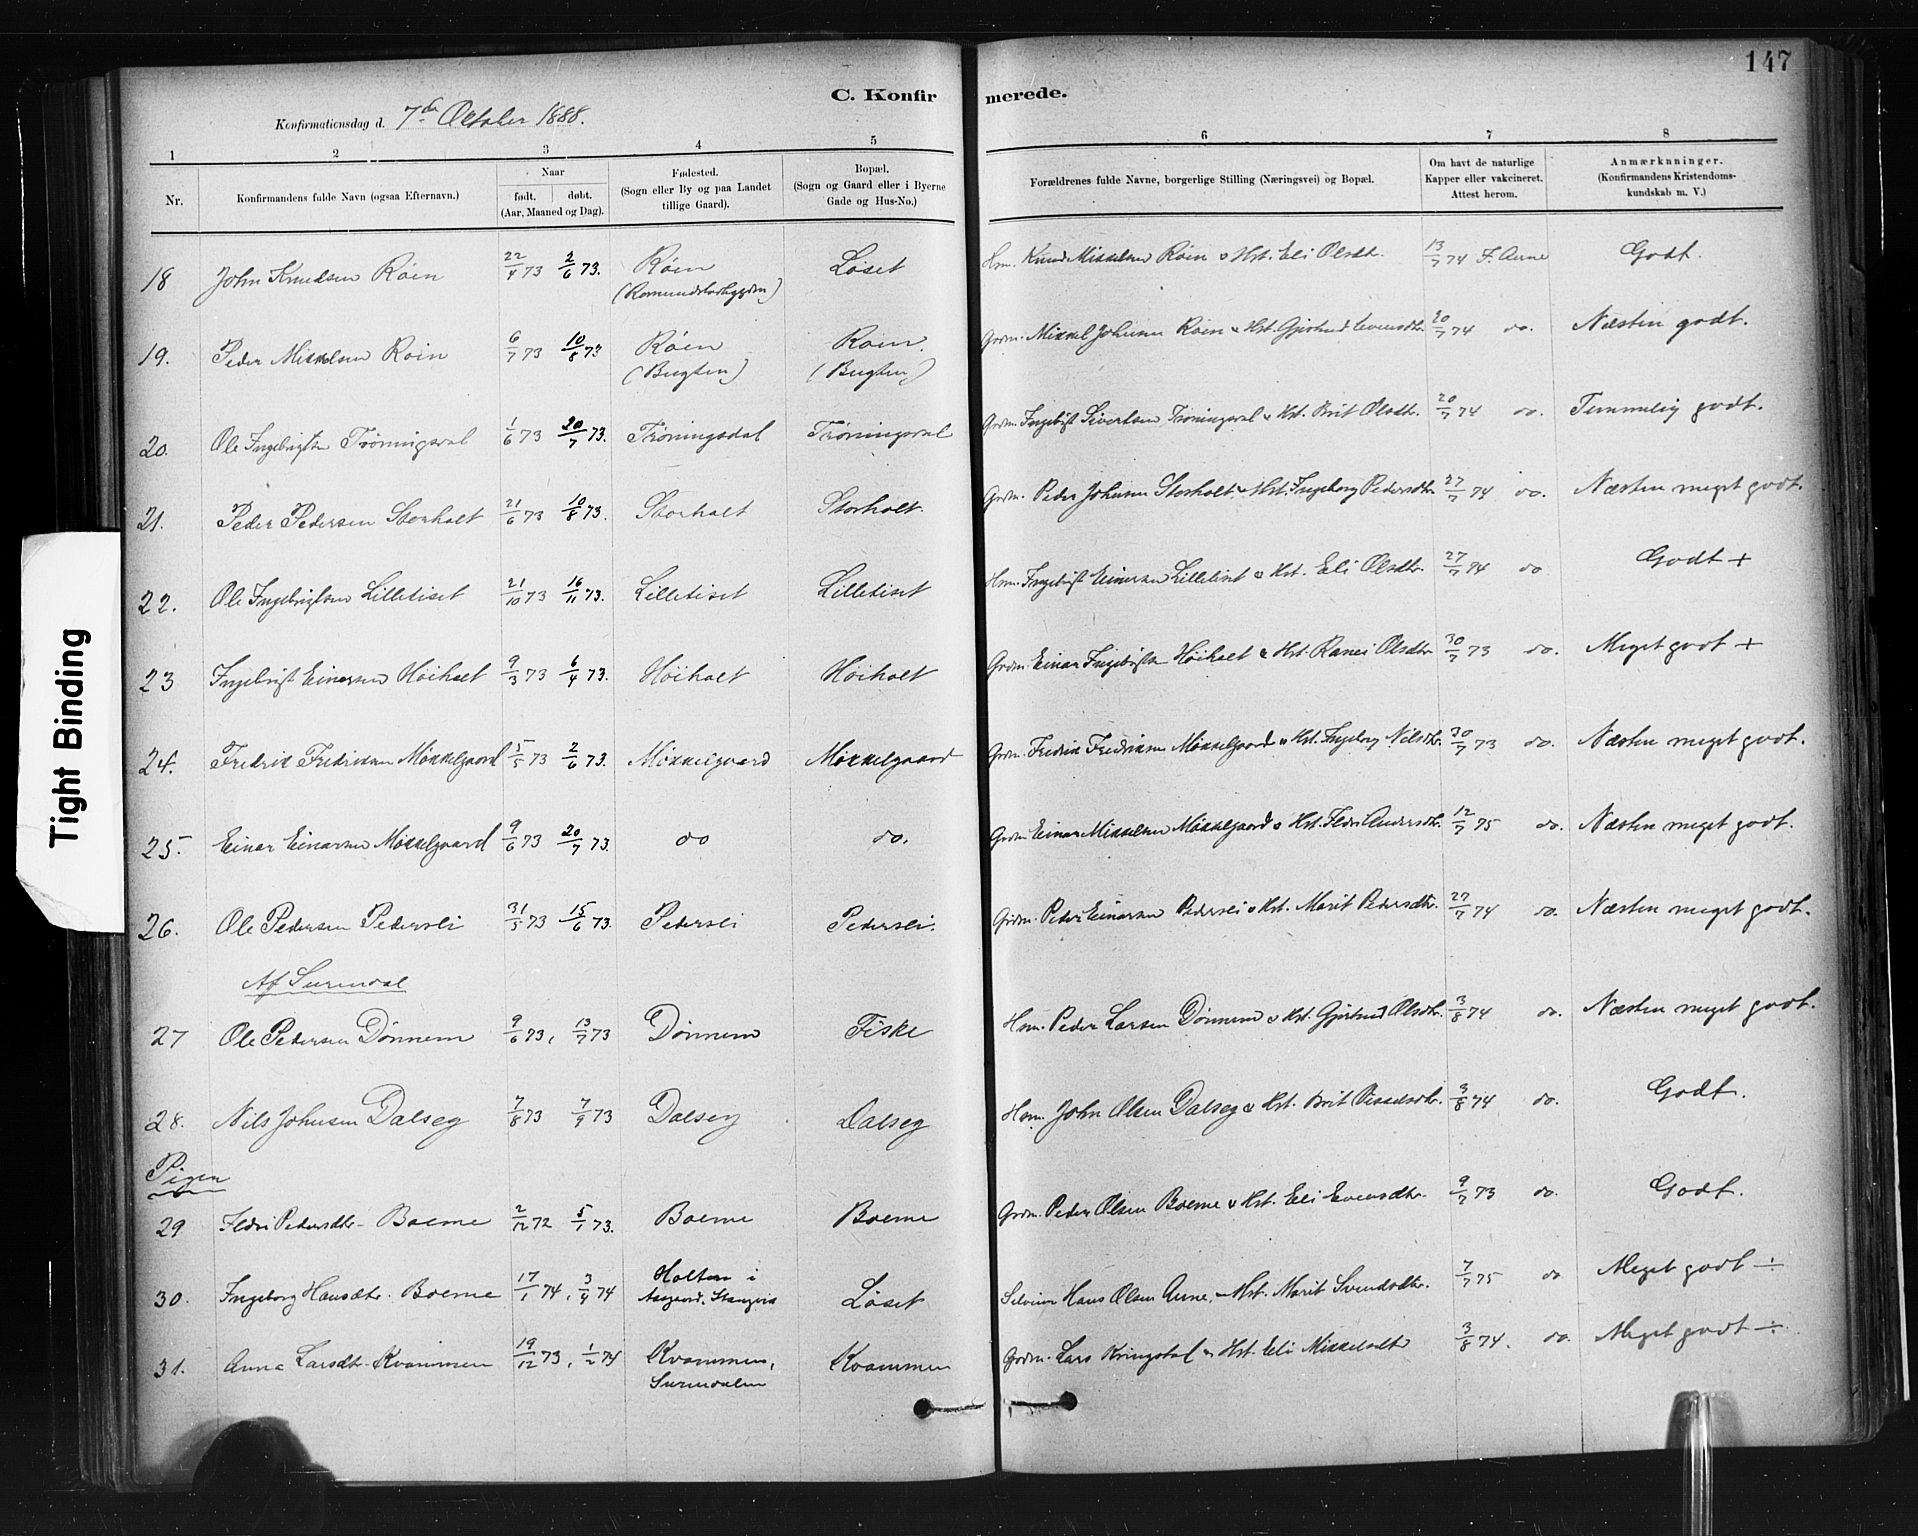 147
C. Konfirmerede.
Konfirmationsdag d. 7de October 1888.
1 2 3 4 5 6 7 8
Nr. Konfirmandens fulde Navn (ogsaa Efternavn.) Naar født. døbt. (Aar, Maaned og Dag). Fødested. (Sogn eller By og paa Landet tillige Gaard). Bopæl. (Sogn og Gaard eller i Byerne Gade og Hus-No.) Forældrenes fulde Navne, borgerlige Stilling (Næringsvei) og Bopæl. Om havt de naturlige Kapper eller vakcineret. Attest herom. Anmærknninger. (Konfirmandens Kristendomskundskab m. V.)
18 John Knudsen Röen 22/4 73 2/6 73. Röen (Romundstadbygden) Löset Hm. Knud Mikkelsen Röen & Kst. Eli Olsdt. 13/7 74 F. Aune Godt.
19. Peder Mikkelsen Roen 6/7 73 10/8 73 Röen (Bugten) Roen. (Bugten) Grdm. Mikkel Johnsen Roen & Kst. Gjertrud Evensdtr. 20/7 74 do. Næsten godt.
20. Ole Ingebrigtsen Trøningsdal 1/6 73 20/7 73. Trøningsdal Trøningsdal Grdm. Ingebrigt Sivertsen Trøningsdal & Kst. Brit Olsdtr. 20/7 74 do. Temmelig godt.
21. Peder Pedersen Storholt 21/6 73 10/8 73. Storholt Storholt. Grdm. Peder Johnsen Storholt & Kst. Ingeborg Pedersdtr. 27/7 74 do. Næsten meget godt.
22. Ole Ingebrigtsen Lilletiset 21/10 73 16/11 73. Lilletiset Lilletiset Hm. Ingebrigt Einersen Lilletiset & Kst. Eli Olsdtr. 27/7 74 do Godt +
23 Ingebrigt Einersen Höiholt 9/3 73 6/4 73. Höiholt Höiholt Grdm. Einar Ingebrigtsen Höiholt & Kst. Ranei Olsdtr. 30/7 73 do. Meget godt +
24. Fredrik Fredriksen Møkkelgaard 5/5 73 2/6 73. Møkkelgaard Møkkelgaard Grdm. Fredrik Fredriksen Møkkelgaard & Kst. Ingeborg Nilsdtr. 30/7 73 do. Næsten meget godt.
25. Einar Einarsen Møkkelgaard 9/6 73 20/7 73. do do. Grdm. Einar Mikkelsen Møkkelgaard & Kst. Ildri Andersdtr. 12/7 75 do. Næsten meget godt.
26. Ole Pedersen Pedersli 31/5 73 15/6 73. Pedersli Pedersli. Grdm. Peder Einarsen Pedersli & Kst. Marit Pedersdtr. 27/7 74 do. Næsten meget godt.
Af Surendal
27 Ole Pedersen Dönnem 9/6 73, 13/7 73 Dönnem Fiske Hm. Peder Larsen Dönnem & Kst. Gjertrud Olsdtr. 3/8 74 do. Næsten meget godt.
28. Nils Johnsen Dalseg 7/8 73 7/9 73 Dalseg Dalseg Hm. John Olsen Dalseg & Kst. Brit 3/8 74 do. Godt.
Pigen
29 Ildri Pedersdtr. Boeme 2/12 72 5/1 73. Boeme Boeme Grdm. Peder Olsen Boeme & Kst. Eli Evensdtr. 9/7 73 do. Godt.
30. Ingeborg Hansdtr. Boeme 17/1 74, 3/4 74 Holten i Aasgaard, Stangvik Löset Selveier Hans Olsen Aune, Kst. Marit Svendsdtr. 7/7 75 do Meget godt ÷
31. Anna Larsdtr. Kvammen 19/12 73, 1/2 74 Kvammen, Surendalen Kvammen Grdm. Lars Kringstal & Kst. Eli Mikkelsdtr 3/8 74. do. Meget godt ÷
Tight Binding